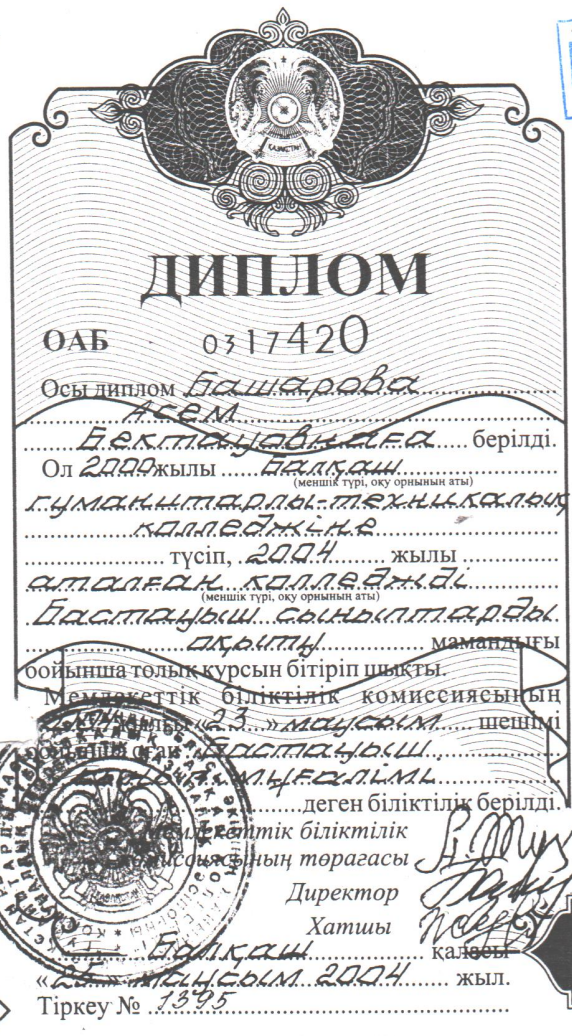 ҚАЗАҚСТАН
ДИПЛОМ
ОАБ 0317420
Осы диплом Башарова
Асем
Бектауовнаға берілді.
Ол 2000 жылы Балқаш
(меншік түрі, оқу орнының аты)
гуманитарлы-техникалық
колледжіне
түсіп, 2004 жылы
аталған колледжді
(меншік түрі, оқу орнының аты)
Бастауыш сыныптарды
оқыту мамандығы
бойынша толық курсын бітіріп шықты.
Мемлекеттік біліктілік комиссиясының
«23» маусым шешімі
Бастауыш
мұғалімі
деген біліктілік берілді.
Мемлекеттік біліктілік
комиссиясының төрағасы
Директор
Хатшы
Балқаш қаласы
«25» маусым 2004 жыл.
Тіркеу № 1395